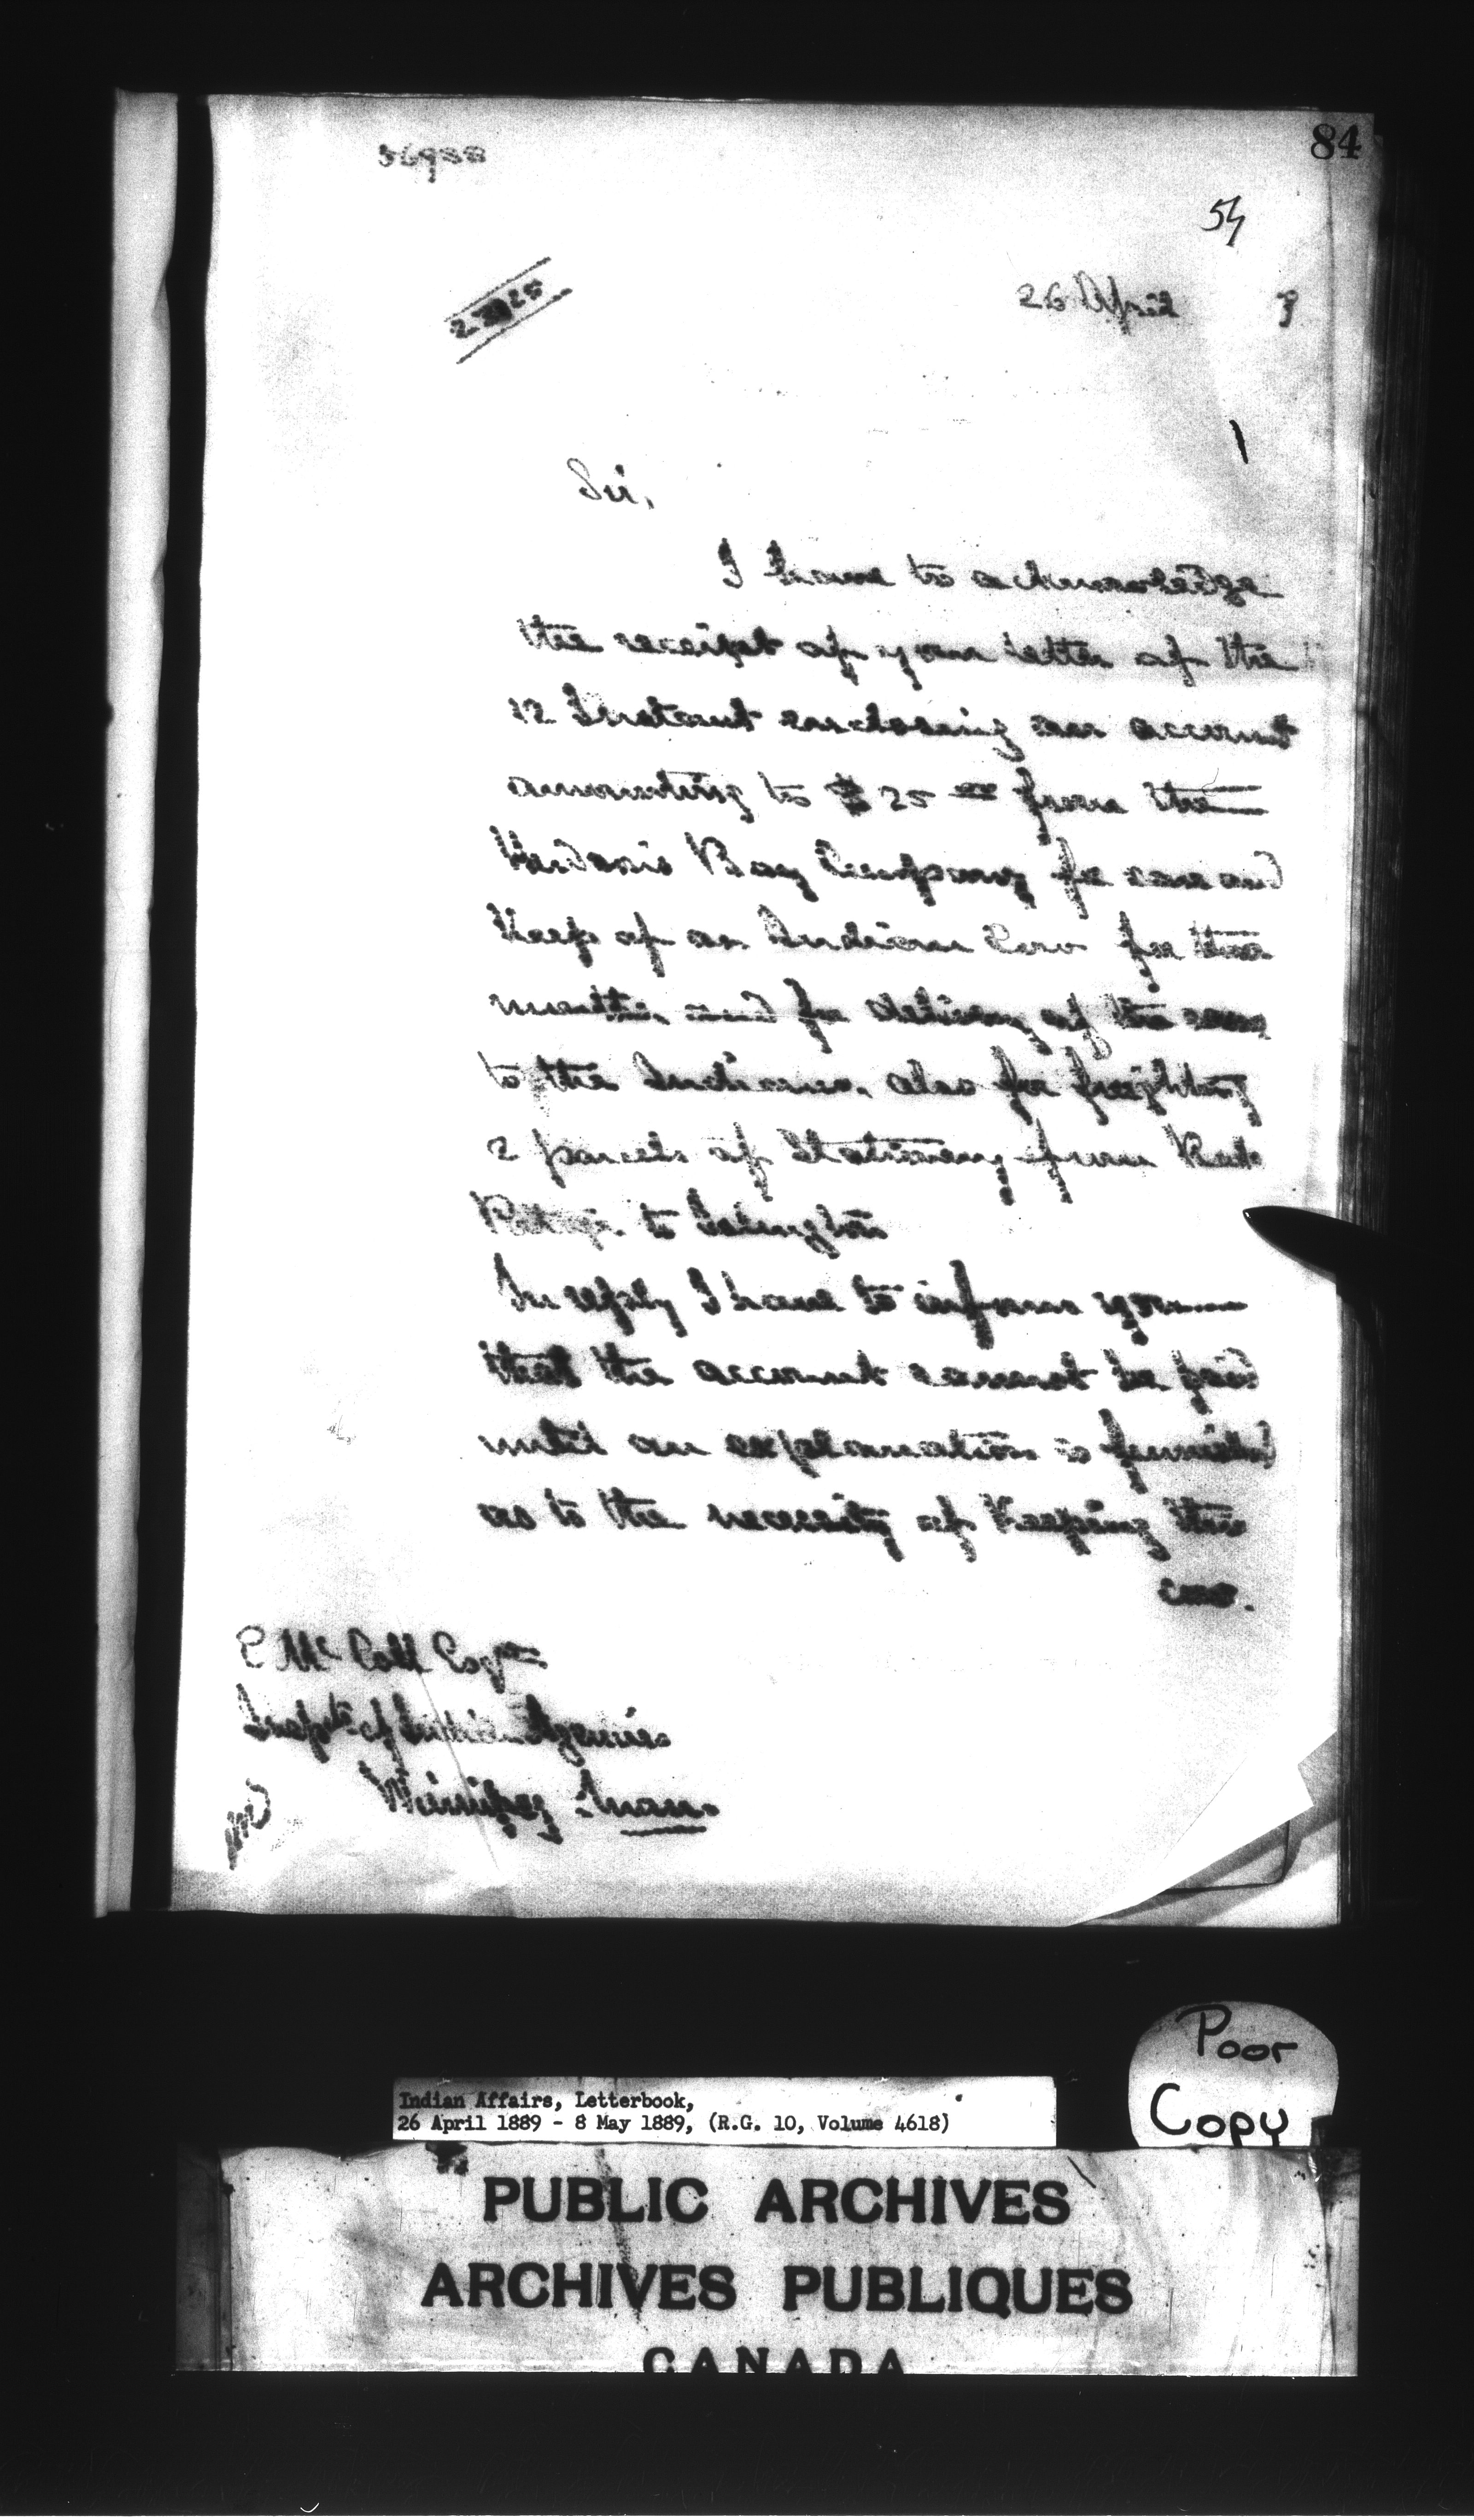 84
56988
54
26 April 9
Sir,
I have to acknowledge
the receipt of your letter of the
12 Instant enclosing an account
amounting to $25 00 from the
Hudson's Bay Company for care and
Keep of an Indian Cow for three
months, and for delivery of the same
to the Indians, also for freighting
2 parcels of Stationery from Rat
Portage to Islington
In reply I have to inform you
that the account cannot be paid
until an explanation is furnished
as to the necessity of Keeping this
cow.
E McColl Esqre
Inspr of Indian Agencies
Winnipeg Man.
Poor
Copy
Indian Affairs, Letterbook,
26 April 1889 - 8 May 1889, (R.G. 10, Volume 4618)
PUBLIC ARCHIVES
ARCHIVES PUBLIQUES
CANADA